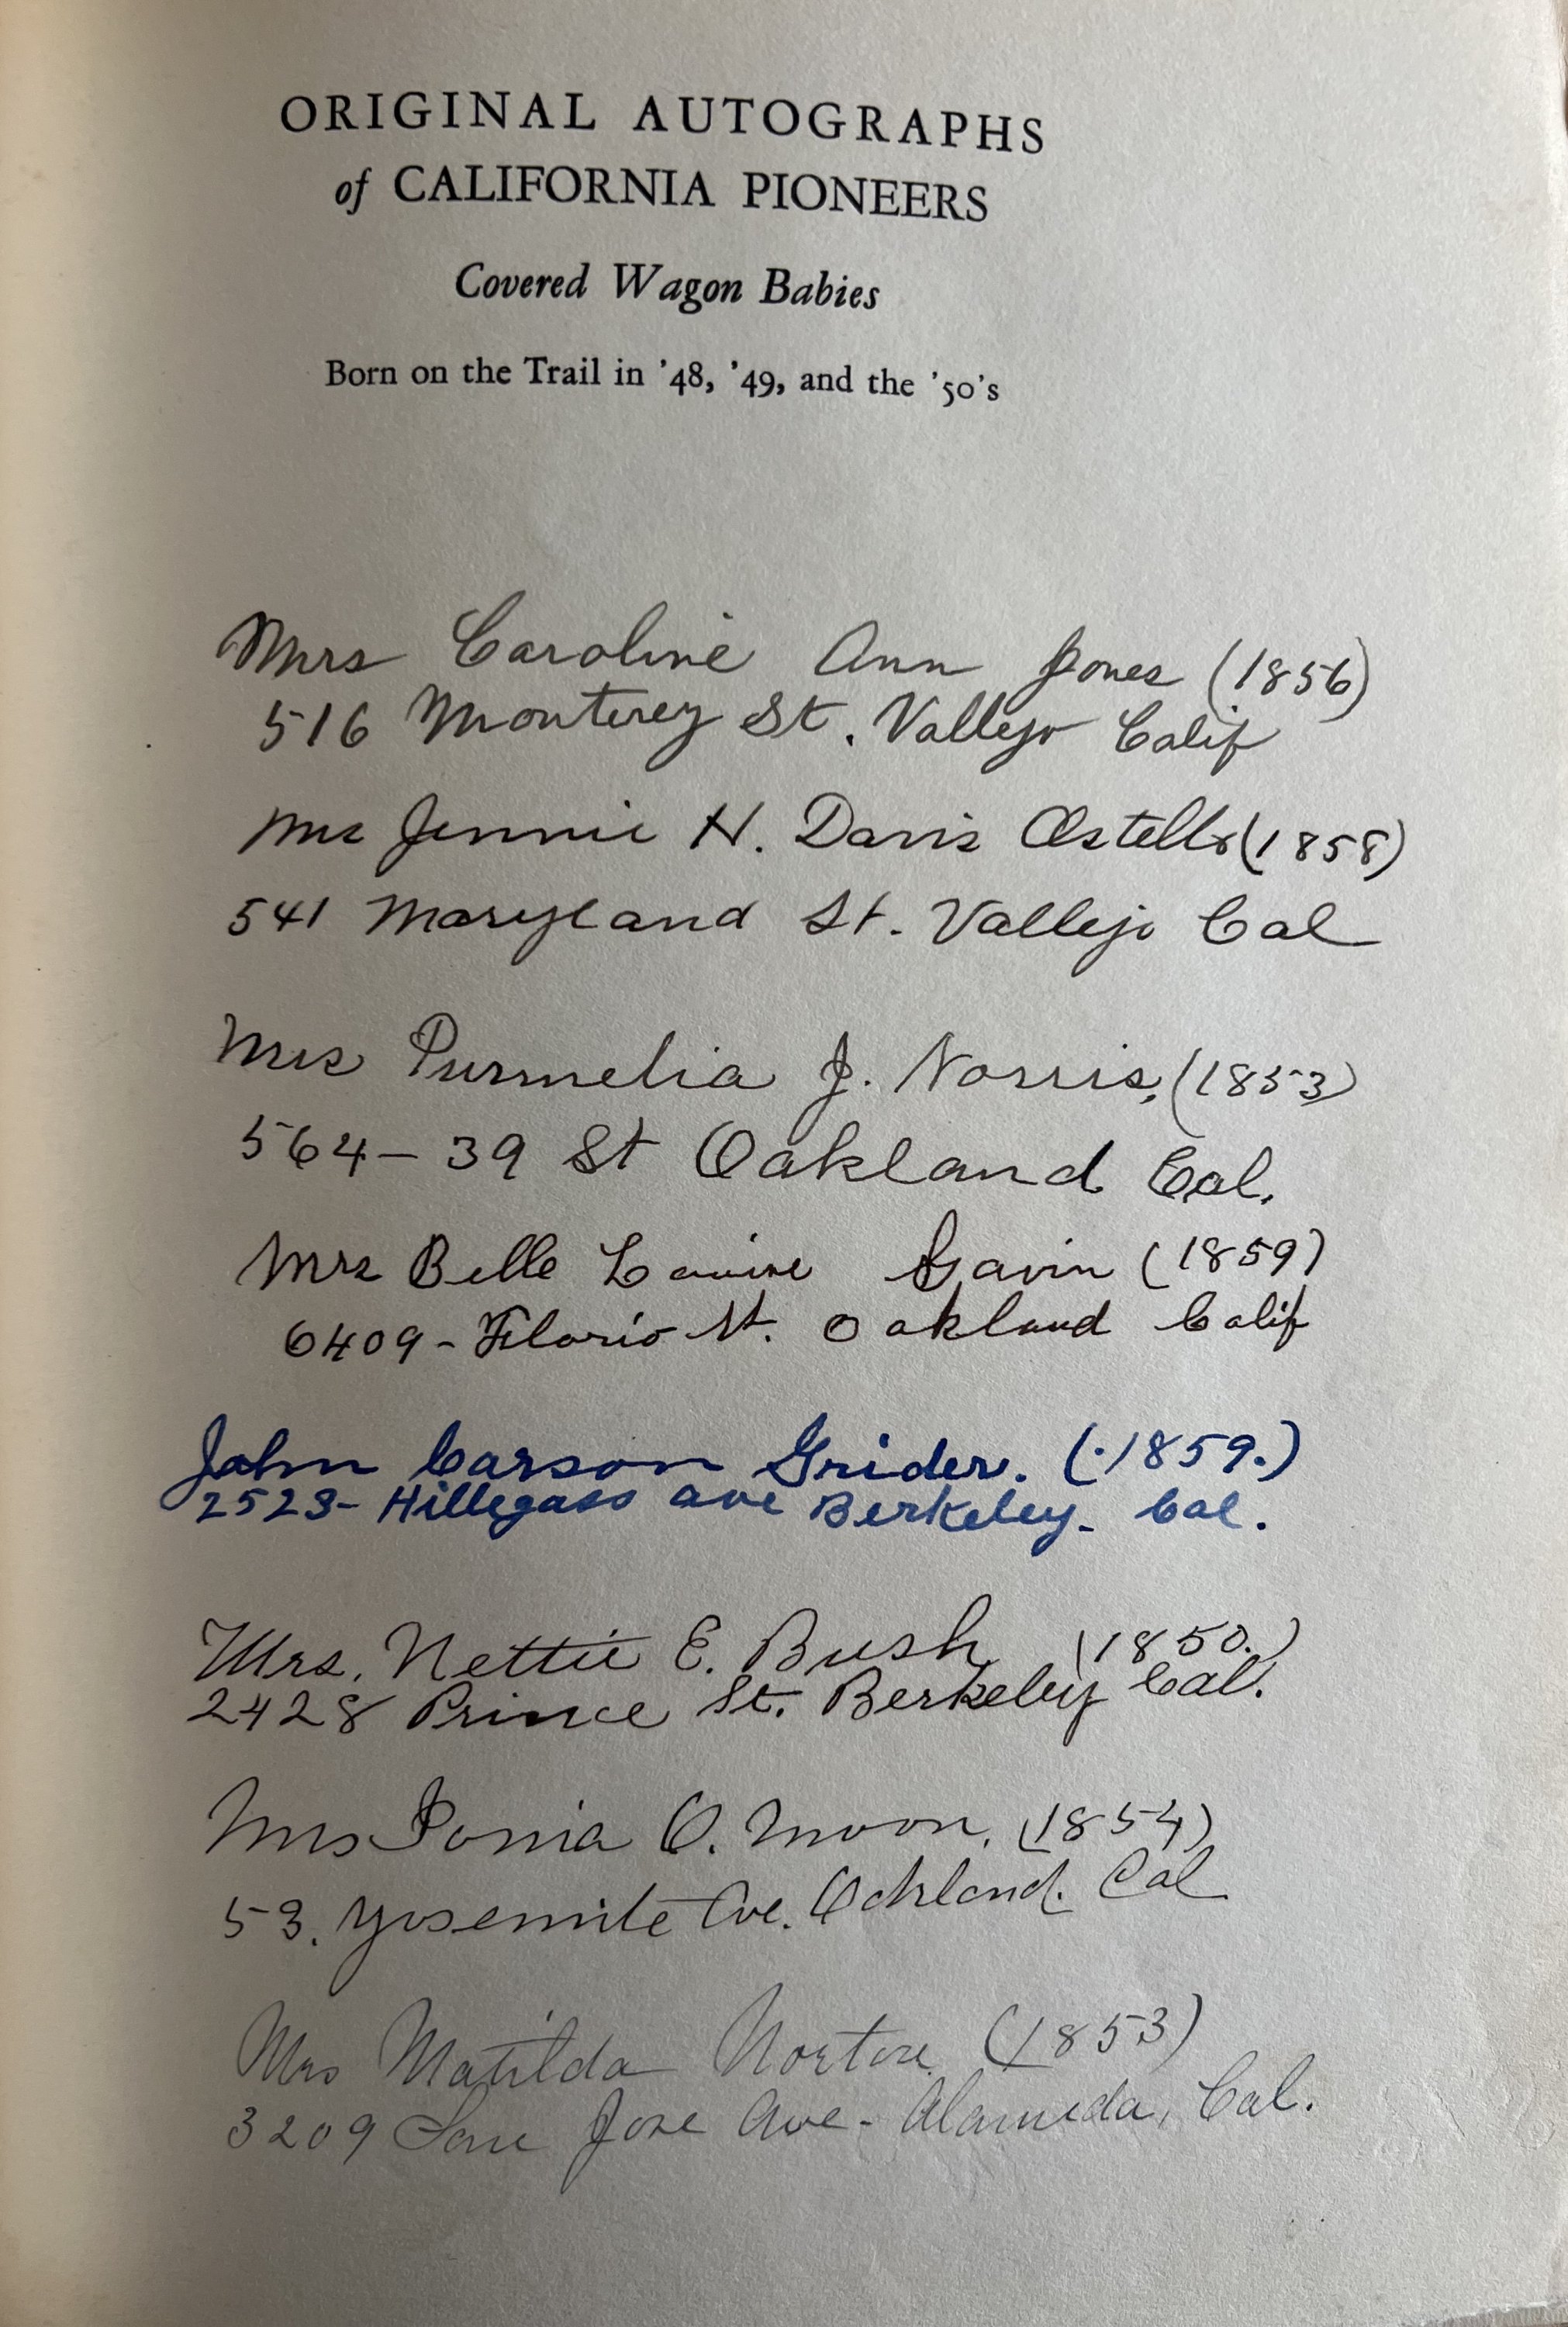 ORIGINAL AUTOGRAPHS
of CALIFORNIA PIONEERS
Covered Wagon Babies
Born on the Trail in '48, '49, and the '50's
Mrs Caroline Ann Jones (1856)
516 Monterey St. Vallejo Calif
Mrs Jennie H. Davis (1858)
541 Maryland St. Vallejo Cal
Mrs Purmelia J. Norris, (1853)
564 - 39 St Oakland Cal.
Mrs Belle Louise Gavin (1859)
6409 - St. Oakland Calif
John Carson Grider. (.1859.)
2523 - Hillegass ave Berkeley - Cal.
Mrs. Nettie E. Bush (1850.)
2428 Prince St. Berkeley Cal.
Mrs O. Moon. (1854)
53. Yosemite Ave. Oakland. Cal
Mrs Matilda Norton (1853)
3209 San Jose Ave - Alameda, Cal.